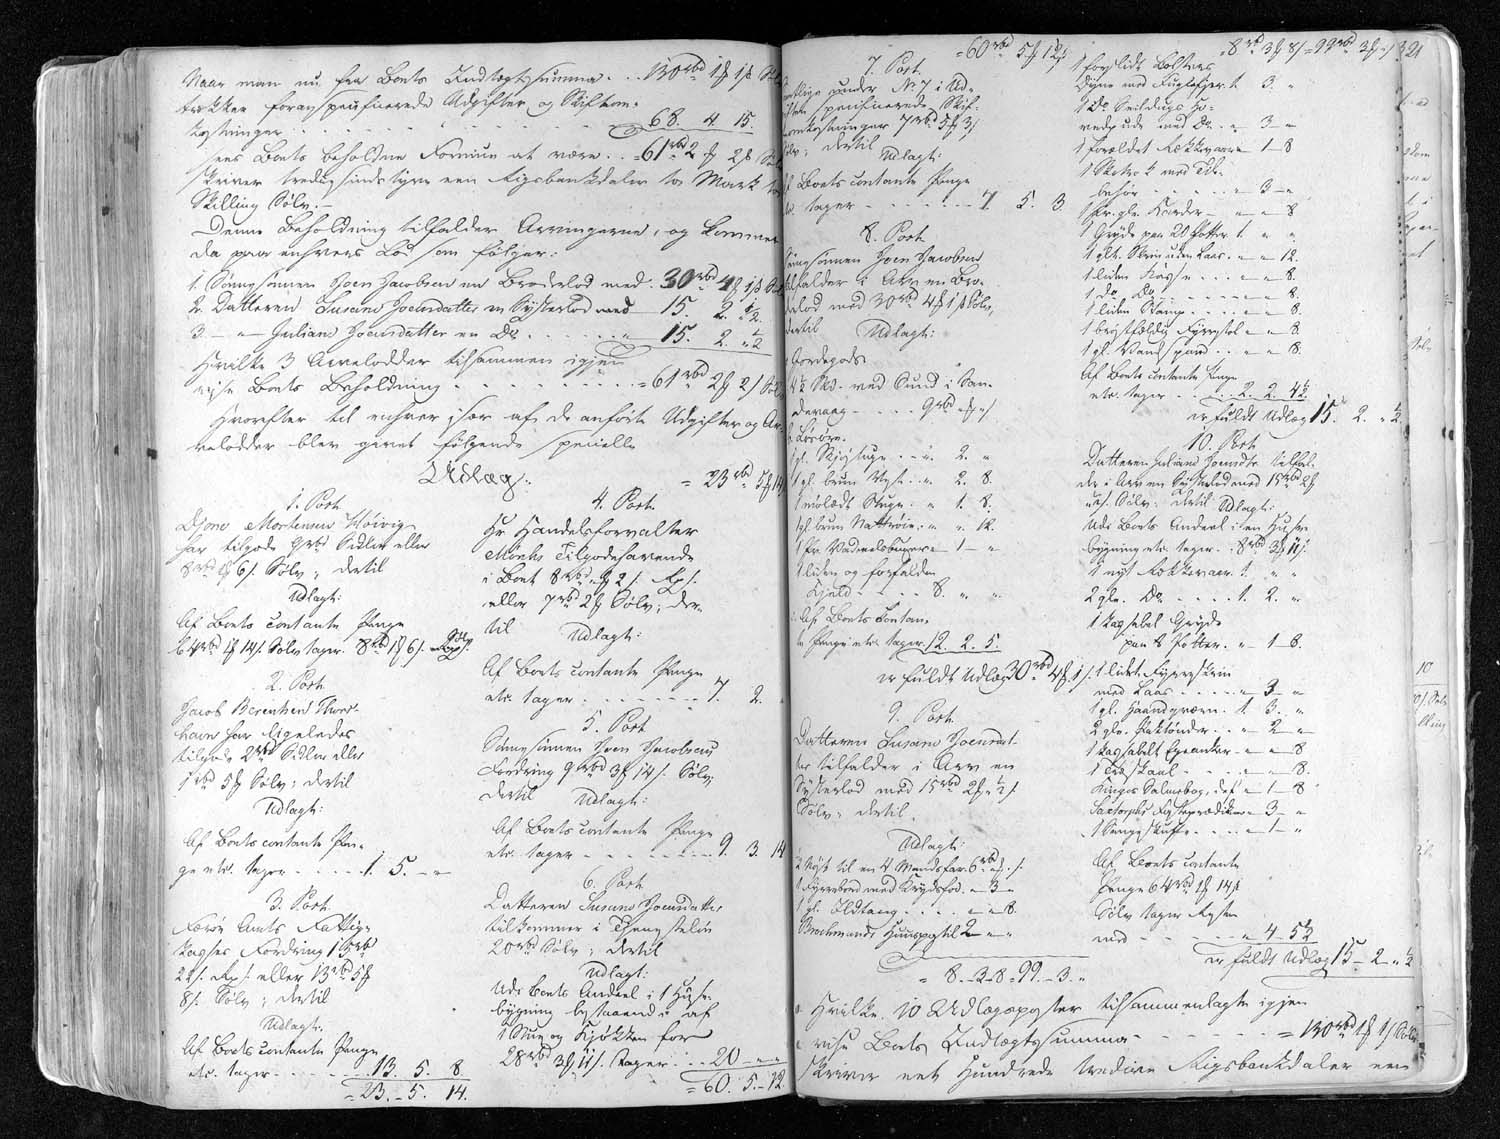 Naar man nu fra Boets Indtægtssumma . . 130 rbd 1 ß 1 s
trækker foranspecificerede Udgifter og Skifteom-
kostninger . . . . . . . 68. 4 15.
sees Boets beholdne Formue at være . . = 61 rbd 2 ß 2 s
skriver tredsindstyve een Rigsbankdaler to Mark to
Skilling Sølv. –
Denne Beholdning tilfalder Arvingerne, og kommer
da paa enhvers Lod som følger:
1. Sønnesønnen Joen Jacobsen en Broderlod med . 30 rbd 4 ß 1 s
2. Datteren Susanne Joensdatter en Søsterlod med 15. 2. " ½.
3. – " – Juliane Joensdatter en Do . . . . . " 15. 2. " ½
Hvilke 3 Arvelodder tilsammen igjen
vise Boets Beholdning . . . . . . = 61 rbd 2 ß 2 s
Hvorefter til enhver især af de anførte Udgifter og Ar-
velodder blev givet følgende specielle
Udlæg:
1. Post.
Mortensen
har tilgode 9 rbd Sedler eller
8 rbd 1 ß 6 s. Sølv; dertil
Udlagt:
Af Boets contante Penge
64 rbd 1 ß 14 s. Sølv tager. 8 rbd 1 ß 6 s.
2. Post.
Jacob Berentsen Thors-
havn har ligeledes
tilgode 2 rbd Sedler eller
1 rbd 5 ß Sølv; dertil
Udlagt:
Af Boets contante Pen-
ge etc. tager . . . . . 1. 5. – "
3. Post.
Færø Amts Fattig-
kasses Fordring 15 rbd
22 s. eller 13 rbd 5 ß
8 s. Sølv; dertil
Udlagt.
Af Boets contante Penge
etc. tager . . . . . 13. 5. 8.
= 23. – 5. 14.
= 23 rbd 5 ß 14
4. Post.
Hr Handelsforvalter
Tilgodehavende
i Boet 8 rbd " ß 2 s.
eller 7 rbd 2 ß Sølv; der-
til Udlagt:
Af Boets contante Penge
etc. tager . . . . . . 7. 2. "
5. Post
Sønnesønnen Joen Jacobsens
Fordring 9 rbd 3 ß 14 s. Sølv;
dertil Udlagt:
Af Boets contante Penge
etc. tager . . . . . . 9. 3. 14
6. Post.
Datteren Susanne Joensdatter
tilkommer i Tjenesteløn
20 rbd Sølv; dertil
Udlagt:
Udi Boets Andeel i 1 Huus-
bygning bestaaende af
1 Stue og Kjøkken for
28 rbd 3 ß 11 s. tager . . 20 – " – "
= 60. 5. – 12.
= 60 rbd 5 ß 12 s
7. Post.
under No 7 i Ud-
specificerede Skif-
teomkostninger 7 rbd 5 ß 3 s
Sølv; dertil
Udlagt:
Af Boets contante Penge
etc. tager . . . . . . 7. 5. 3.
8. Post.
Sønnesønnen Joen Jacobsen
tilfalder i Arv en Bro-
derlod med 30 rbd 4 ß 1 s Sølv,
dertil Udlagt:
Jordegods
ved Sund i San-
devaag . . . . . 9 rbd " ß " s
Løsøre.
1 gl. Skjøtuge . . . " 2. "
1 gl. brun Vest . . " 2. 8.
1 . . " 1. 8.
1 gl. brun Nattrøie . " " 12.
1 Pr. Vadmelsbuxer – 1 – "
1 liden og forfalden
Kjæld . . . . 8. " "
Af Boets Contan-
te Penge etc. tager 12. 2. 5.
er fuldt Udlæg 30 rbd 4 ß 1 s.
9. Post.
Datteren Susanne Joensdat-
ter tilfalder i Arv en
Søsterlod med 15 rbd 2 ß " ½ s.
Sølv; dertil.
Udlagt:
til en 4 Mandsfar. 6 rbd " ß " s.
1 Fyrrebord med Krydsfod. " – 3 – "
1 gl. Ildtang . . . . " – " – 8.
Brochmands Huuspostil 2 – " – "
= 8 – 3 – 8 – 99. – 3. "
= 8 rbd 3 ß 8 s = 99 rbd 3 ß " s 321
1 forslidt Bolsters
Dyne med Fuglefjer. 1. 3. "
1 Do Seildugs Ho-
vedpude med Do . " – 3 – "
1 forældet Rokkevaare – 1 – 8
1 Skotrok med Til-
behør . . . . . " – 3 – "
1 Pr. gle. Karder – " – " – 8
1 Gryde paa 20 Potter 1. " "
1 glt. Skrin uden Laas . " – " – 12.
1 liden Kasse . . . " – " – 8.
1 Do Do . . . . . " – " – 8.
1 liden Stamp . . . " – " – 8.
1 brøstfældig . . " – " – 8.
1 gl. Vandspand . . " – " – 8.
Af Boets contante Penge
etc. tager . . . . 2. 2. 4½.
er fuldt Udlæg 15. 2. " ½
10. Post.
Datteren Juliane Joensdtr. tilfal-
der i Arv en Søsterlod med 15 rbd 2 ß
" ½ s. Sølv; dertil Udlagt:
Udi Boets Andeel i en Huus-
bygning etc. tager . 8 rbd 3 ß 11 s.
1 nyt Rokkevær . 1. " "
2 gle. Do . . . . 1. 2. "
1 kagsebel Gryde
paa 8 Potter . " – 1 – 8.
1 lidet Fyrreskrin
med Laas . . . . " – 3 – "
1 gl. Haandqværn . 1. 3. "
2 gle. . . " – 2 – "
1 – " – " – 8
1 Træskaal . . . . " – " – 8.
Kingos Salmebog, def. " – 1 – 8
Fasteprædikener – 3 – "
. . . . " – 1 – "
Af Boets contante
Penge 64 rbd 1 ß 14 s
Sølv tager
med . . . . . " 4 – 5½
er fuldt Udlæg 15 – 2 – " ½
Hvilke 10 Udlægsposter tilsammenlagte igjen
vise Boets Indtægtssumma . . . . . = 130 rbd 1 ß 1 s Sølv
skriver eet Hundrede tredive Rigsbankdaler een